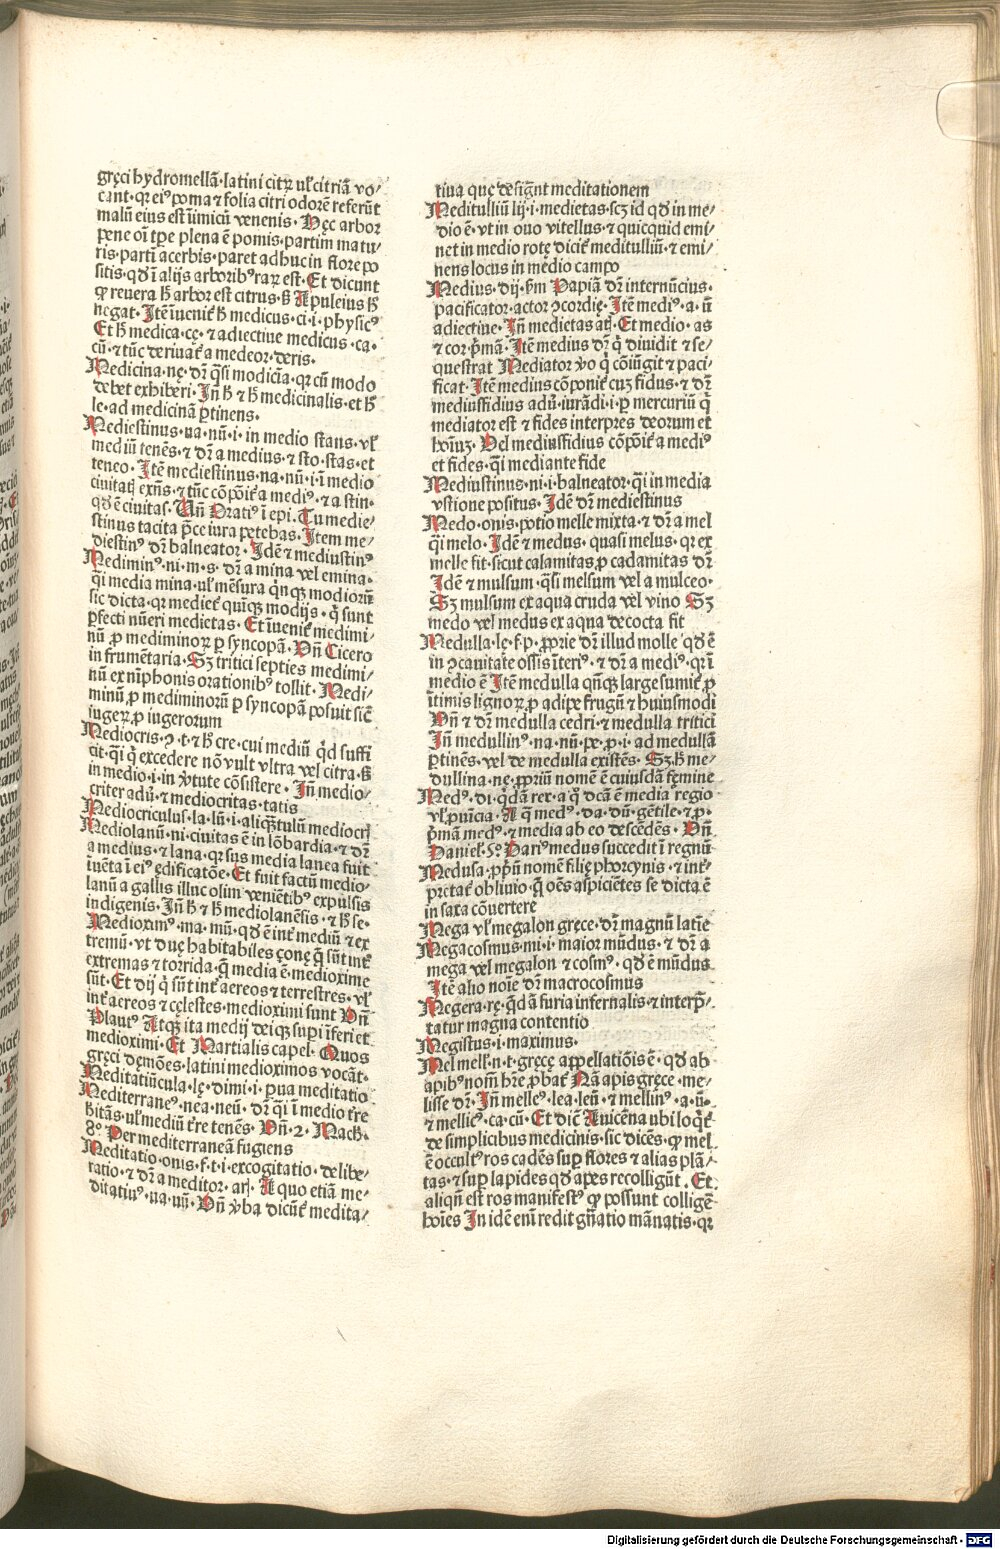 gręci hydromellā·latini citꝝ ul̕ citriā vo⸗
cant·qꝛ ei⁹ poma ⁊ folia citri odorē referūt
malū eius est īimicū venenis· Hęc arbor
pene oī tp̄e plena ē pomis·partim matu⸗
ris·parti acerbis·paret adhuc in flore po
sitis·qđ ī alijs arborib⁹ raꝝ est· Et dicunt
ꝙ reuera h̄ arbor est citrus·ß Apuleius h̄
negat· Itē iuenit̄ h̄ medicus·ci·i·physic⁹
Et h̄ medica·cę·⁊ adiectiue medicus·ca·
cū·⁊ tūc deriuat̄ a medeor·deris·
Medicina·nę·dr̄ q̄si modicia·qꝛ cū modo
debet exhiberi· In̄ h̄ ⁊ h̄ medicinalis·et h̄
le·ad medicinā ꝑtinens·
Mediestinus·ua·nū·i·in medio stans·vl̕
mediū tenēs·⁊ dr̄ a medius·⁊ sto·stas·et
teneo· Itē mediestinus·na·nū·i·ī medio
ciuitatꝭ exn̄s·⁊ tūc cōpōit̄ a medi⁹·⁊ a stin·
qđ ē ciuitas· Vn̄ Orati⁹ ī epi· Tu medie⸗
stinus tacita p̄ce iura petebas· Item me⸗
diestin⁹ dr̄ balneator· Idē ⁊ mediustin⁹
Medimin⁹·ni·m·s· dr̄ a mina vel emina·
q̄i media mina·ul̕ mēsura qn̄qꝫ modiorū
sic dicta·qꝛ mediet̄ quinqꝫ modijs·q̄ sunt
ꝑfecti nūeri medietas· Et īuenit̄ medimi⸗
nū ꝓ mediminoꝝ ꝑ syncopā· Vn̄ Cicero
in frumētaria· Sꝫ tritici septies medimi⸗
nū ex nīphonis orationib⁹ tollit· Medi⸗
minū ꝓ mediminorū ꝑ syncopā posuit sic̄
iugeꝝ ꝓ iugerorum
Mediocris·ꝯ·t·⁊ h̄ cre·cui mediū q̄d suffi
cit·q̄i q̄ excedere nō vult vltra vel citra·ß
in medio·i·in v̄tute cōsistere· In̄ medio⸗
criter adū·⁊ mediocritas·tatis
Mediocriculus·la·lū·i·aliqꝫtulū mediocrꝭ
Mediolanū·ni·ciuitas ē in lōbardia·⁊ dr̄
a medius·⁊ lana·qꝛ sus media lanea fuit
īuēta ī ei⁹ ędificatōe· Et fuit factū medio⸗
lanū a gallis illuc olim veniētib⁹ expulsis
indigenis· In̄ h̄ ⁊ h̄ mediolanēsis·⁊ h̄ se·
Medioxim⁹·ma·mū·qđ ē int̄ mediū ⁊ ex
tremū·vt duę habitabiles çonę q̄ sūt int̄
extremas ⁊ torrida·q̄ media ē·medioxime
sūt· Et dij q̄ sūt int̄ aereos ⁊ terrestres·vl̕
int̄ aereos ⁊ cęlestes·medioximi sunt Vn̄
Plaut⁹ Atqꝫ ita medij deiqꝫ supi īferi et
medioximi· Et Martialis capel· Quos
gręci dęmōes·latini medioximos vocāt·
Meditatiūcula·lę·dimi·i·ꝑua meditatio
Mediterrane⁹·nea·neū· dr̄ qi ī medio t̄re
h̄itās·ul̕ mediū t̄re tenēs· Vn̄·2· Mach̄·
8° Per mediterraneā fugiens
Meditatio·onis·f·t·i·excogitatio·delibe⸗
ratio·⁊ dr̄ a meditor·arꝭ· A quo etiā me⸗
ditatiu⁹·ua·uū· Vn̄ v̄ba dicūt̄ medita⸗
tiua quę designt meditationem
Meditulliū lij·i·medietas·scꝫ id qđ in me⸗
dio ē·vt in ouo vitellus·⁊ quicquid emi⸗
net in medio rotę dicit̄ meditulliū·⁊ emi⸗
nens locus in medio campo
Medius·dij·ẜm Papiā dr̄ internūcius·
pacificator·actor ꝯcordię· Itē medi⁹·a·ū
adiectiue· In̄ medietas atꝭ· Et medio·as
⁊ cor·p̄mā· Itē medius dr̄ q̄ diuidit ⁊ se⸗
questrat Mediator v̄o q̄ cōiūgit ⁊ paci⸗
ficat· Itē medius cōponit̄ cuꝫ fidus·⁊ dr̄
mediusfidius adū·iurādi·i·ꝑ mercuriū q̄
mediator est ⁊ fides interpres deorum et
hoīuꝫ· Vel mediusfidius cōpōit̄ a medi⁹
et fides·q̄i mediante fide
Mediustinus·ni·i·balneator·q̄i in media
vstione positus· Idē dr̄ mediestinus
Medo·onis·potio melle mixta·⁊ dr̄ a mel
q̄i melo· Idē ⁊ medus·quasi melus·qꝛ ex
melle fit·sicut calamitas ꝓ cadamitas dr̄
Idē ⁊ mulsum·q̄si melsum vel a mulceo·
Sꝫ mulsum ex aqua cruda vel vino Sꝫ
medo vel medus ex aqua decocta fit
Medulla·lę·f·p·ꝓprie dr̄ illud molle qđ ē
in ꝯcauitate ossis īteri⁹·⁊ dr̄ a medi⁹·qꝛ ī
medio ē Itē medulla qn̄qꝫ large sumit̄ ꝓ
ītimis lignoꝝ·ꝓ adipe frugū ⁊ huiusmodi
Vn̄ ⁊ dr̄ medulla cedri·⁊ medulla tritici
In̄ medullin⁹·na·nū·pe·ꝓ·i·ad medullā
ꝑtinēs·vel de medulla existēs· Sꝫ·h̄ me⸗
dullina·nę·ꝓpriū nomē ē cuiusdā fęmine
Med⁹·di·q̄dā rex·a q̄ dcā ē media regio
vl̕ ꝓuincia· A q̄ med⁹·da·dū·gētile·⁊ ꝓ·
p̄mā med⁹·⁊ media ab eo descēdēs· Vn̄
Daniel·5° Dari⁹ medus succedit ī regnū
Medusa·ꝓpriū nomē filię phorcynis·⁊ int̄⸗
pretat̄ obliuio·q̄ oēs aspiciētes se dicta ē
in saxa cōuertere
Mega vl̕ megalon gręce·dr̄ magnū latīe
Megacosmus·mi·i·maior mūdus·⁊ dr̄ a
mega vel megalon ⁊ cosm⁹·qđ ē mūdus
Itē alio noīe dr̄ macrocosmus
Megera·rę·q̄dā furia infernalis·⁊ interp̄⸗
tatur magna contentio
Megistus·i·maximus·
Mel mell·n·t·gręcę appellatiōis ē·qđ ab
apib⁹ nomē h̄re ꝓbat̄ Nā apis gręce·me⸗
lisse dr̄· In̄ melle⁹·lea·leū·⁊ mellin⁹·a·ū·
⁊ mellic⁹·ca·cū· Et dicē Auicēna ubi loqt̄
de simplicibus medicinis·sic dicēs·ꝙ mel
ē occult⁹ ros cadēs suꝑ flores ⁊ alias plā⸗
tas·⁊ suꝑ lapides qđ apes recolligūt· Et
aliqn̄ est ros manifest⁹ ꝙ possunt colligē
hoīes In idē enī redit gn̄atio mānatis·qꝛ
Digitalisierung gefördert durch die Deutsche Forschungsgemeinschaft - DFG